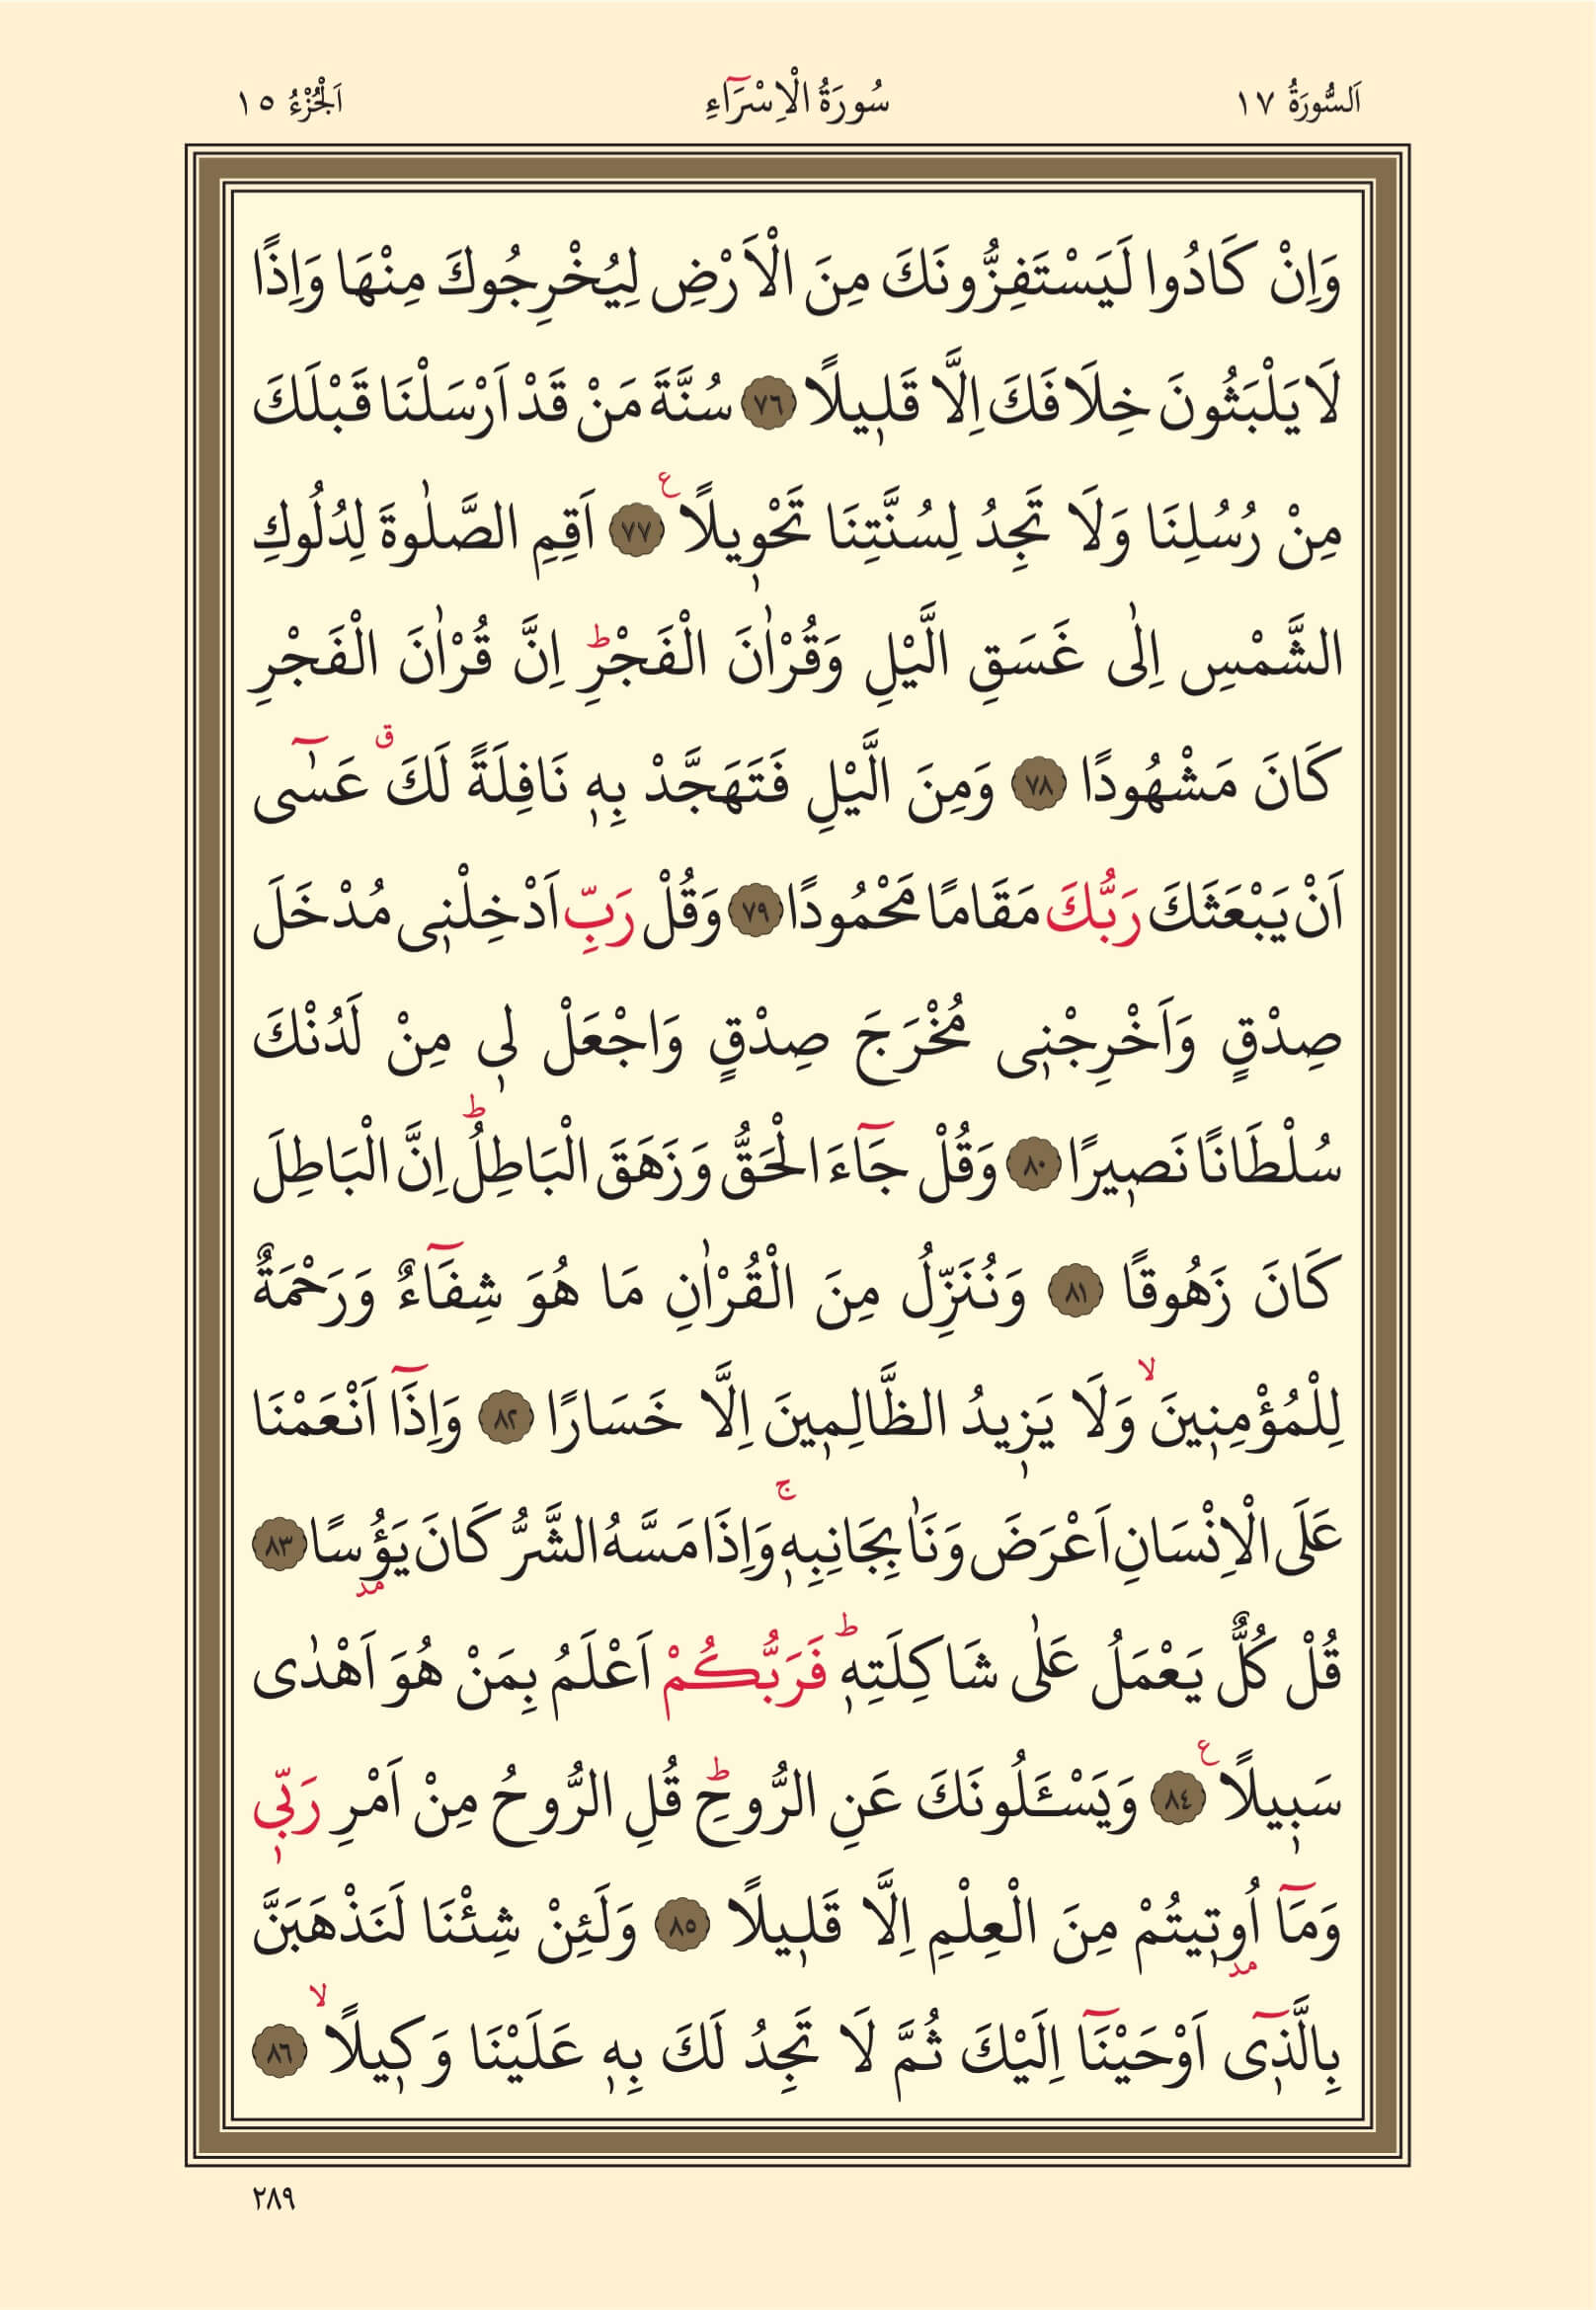 اَلسُّورَةُ ١٧ سُورَةُ الْاِسْرَٓاءِ اَلْجُزْءُ ١٥
وَاِنْ كَادُوا لَيَسْتَفِزُّونَكَ مِنَ الْاَرْضِ لِيُخْرِجُوكَ مِنْهَا وَاِذًا
لَا يَلْبَثُونَ خِلَافَكَ اِلَّا قَل۪يلًا ﴿٧٦﴾ سُنَّةَ مَنْ قَدْ اَرْسَلْنَا قَبْلَكَ
مِنْ رُسُلِنَا وَلَا تَجِدُ لِسُنَّتِنَا تَحْو۪يلًا ع ﴿٧٧﴾ اَقِمِ الصَّلٰوةَ لِدُلُوكِ
الشَّمْسِ اِلٰى غَسَقِ الَّيْلِ وَقُرْاٰنَ الْفَجْرِۜ اِنَّ قُرْاٰنَ الْفَجْرِ
كَانَ مَشْهُودًا ﴿٧٨﴾ وَمِنَ الَّيْلِ فَتَهَجَّدْ بِه۪ نَافِلَةً لَكَۗ عَسٰٓى
اَنْ يَبْعَثَكَ رَبُّكَ مَقَامًا مَحْمُودًا ﴿٧٩﴾ وَقُلْ رَبِّ اَدْخِلْن۪ى مُدْخَلَ
صِدْقٍ وَاَخْرِجْن۪ى مُخْرَجَ صِدْقٍ وَاجْعَلْ ل۪ى مِنْ لَدُنْكَ
سُلْطَانًا نَص۪يرًا ﴿٨٠﴾ وَقُلْ جَٓاءَ الْحَقُّ وَزَهَقَ الْبَاطِلُۜ اِنَّ الْبَاطِلَ
كَانَ زَهُوقًا ﴿٨١﴾ وَنُنَزِّلُ مِنَ الْقُرْاٰنِ مَا هُوَ شِفَٓاءٌ وَرَحْمَةٌ
لِلْمُؤْمِن۪ينَۙ وَلَا يَز۪يدُ الظَّالِم۪ينَ اِلَّا خَسَارًا ﴿٨٢﴾ وَاِذَٓا اَنْعَمْنَا
عَلَى الْاِنْسَانِ اَعْرَضَ وَنَاٰ بِجَانِبِه۪ۚ وَاِذَا مَسَّهُ الشَّرُّ كَانَ يَؤُ۫سًا ﴿٨٣﴾
قُلْ كُلٌّ يَعْمَلُ عَلٰى شَاكِلَتِه۪ۜ فَرَبُّكُمْ اَعْلَمُ بِمَنْ هُوَ اَهْدٰى
سَب۪يلًا ع ﴿٨٤﴾ وَيَسْـَٔلُونَكَ عَنِ الرُّوحِۜ قُلِ الرُّوحُ مِنْ اَمْرِ رَبّ۪ى
وَمَٓا اُو۫ت۪يتُمْ مِنَ الْعِلْمِ اِلَّا قَل۪يلًا ﴿٨٥﴾ وَلَئِنْ شِئْنَا لَنَذْهَبَنَّ
بِالَّذ۪ٓى اَوْحَيْنَٓا اِلَيْكَ ثُمَّ لَا تَجِدُ لَكَ بِه۪ عَلَيْنَا وَك۪يلًاۙ ﴿٨٦﴾
٢٨٩